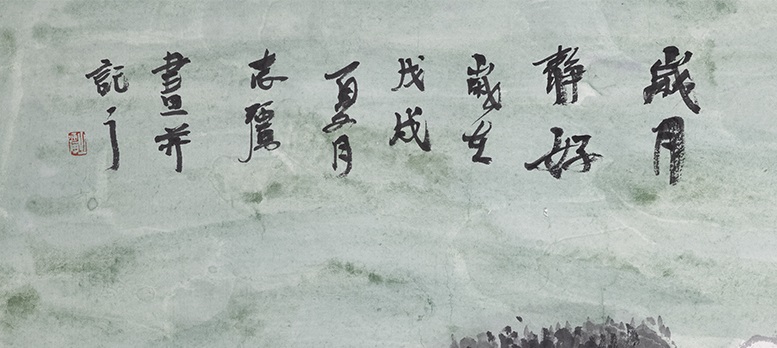 歲月
靜好
歲在
戊戌
夏月
志
畫并
記之